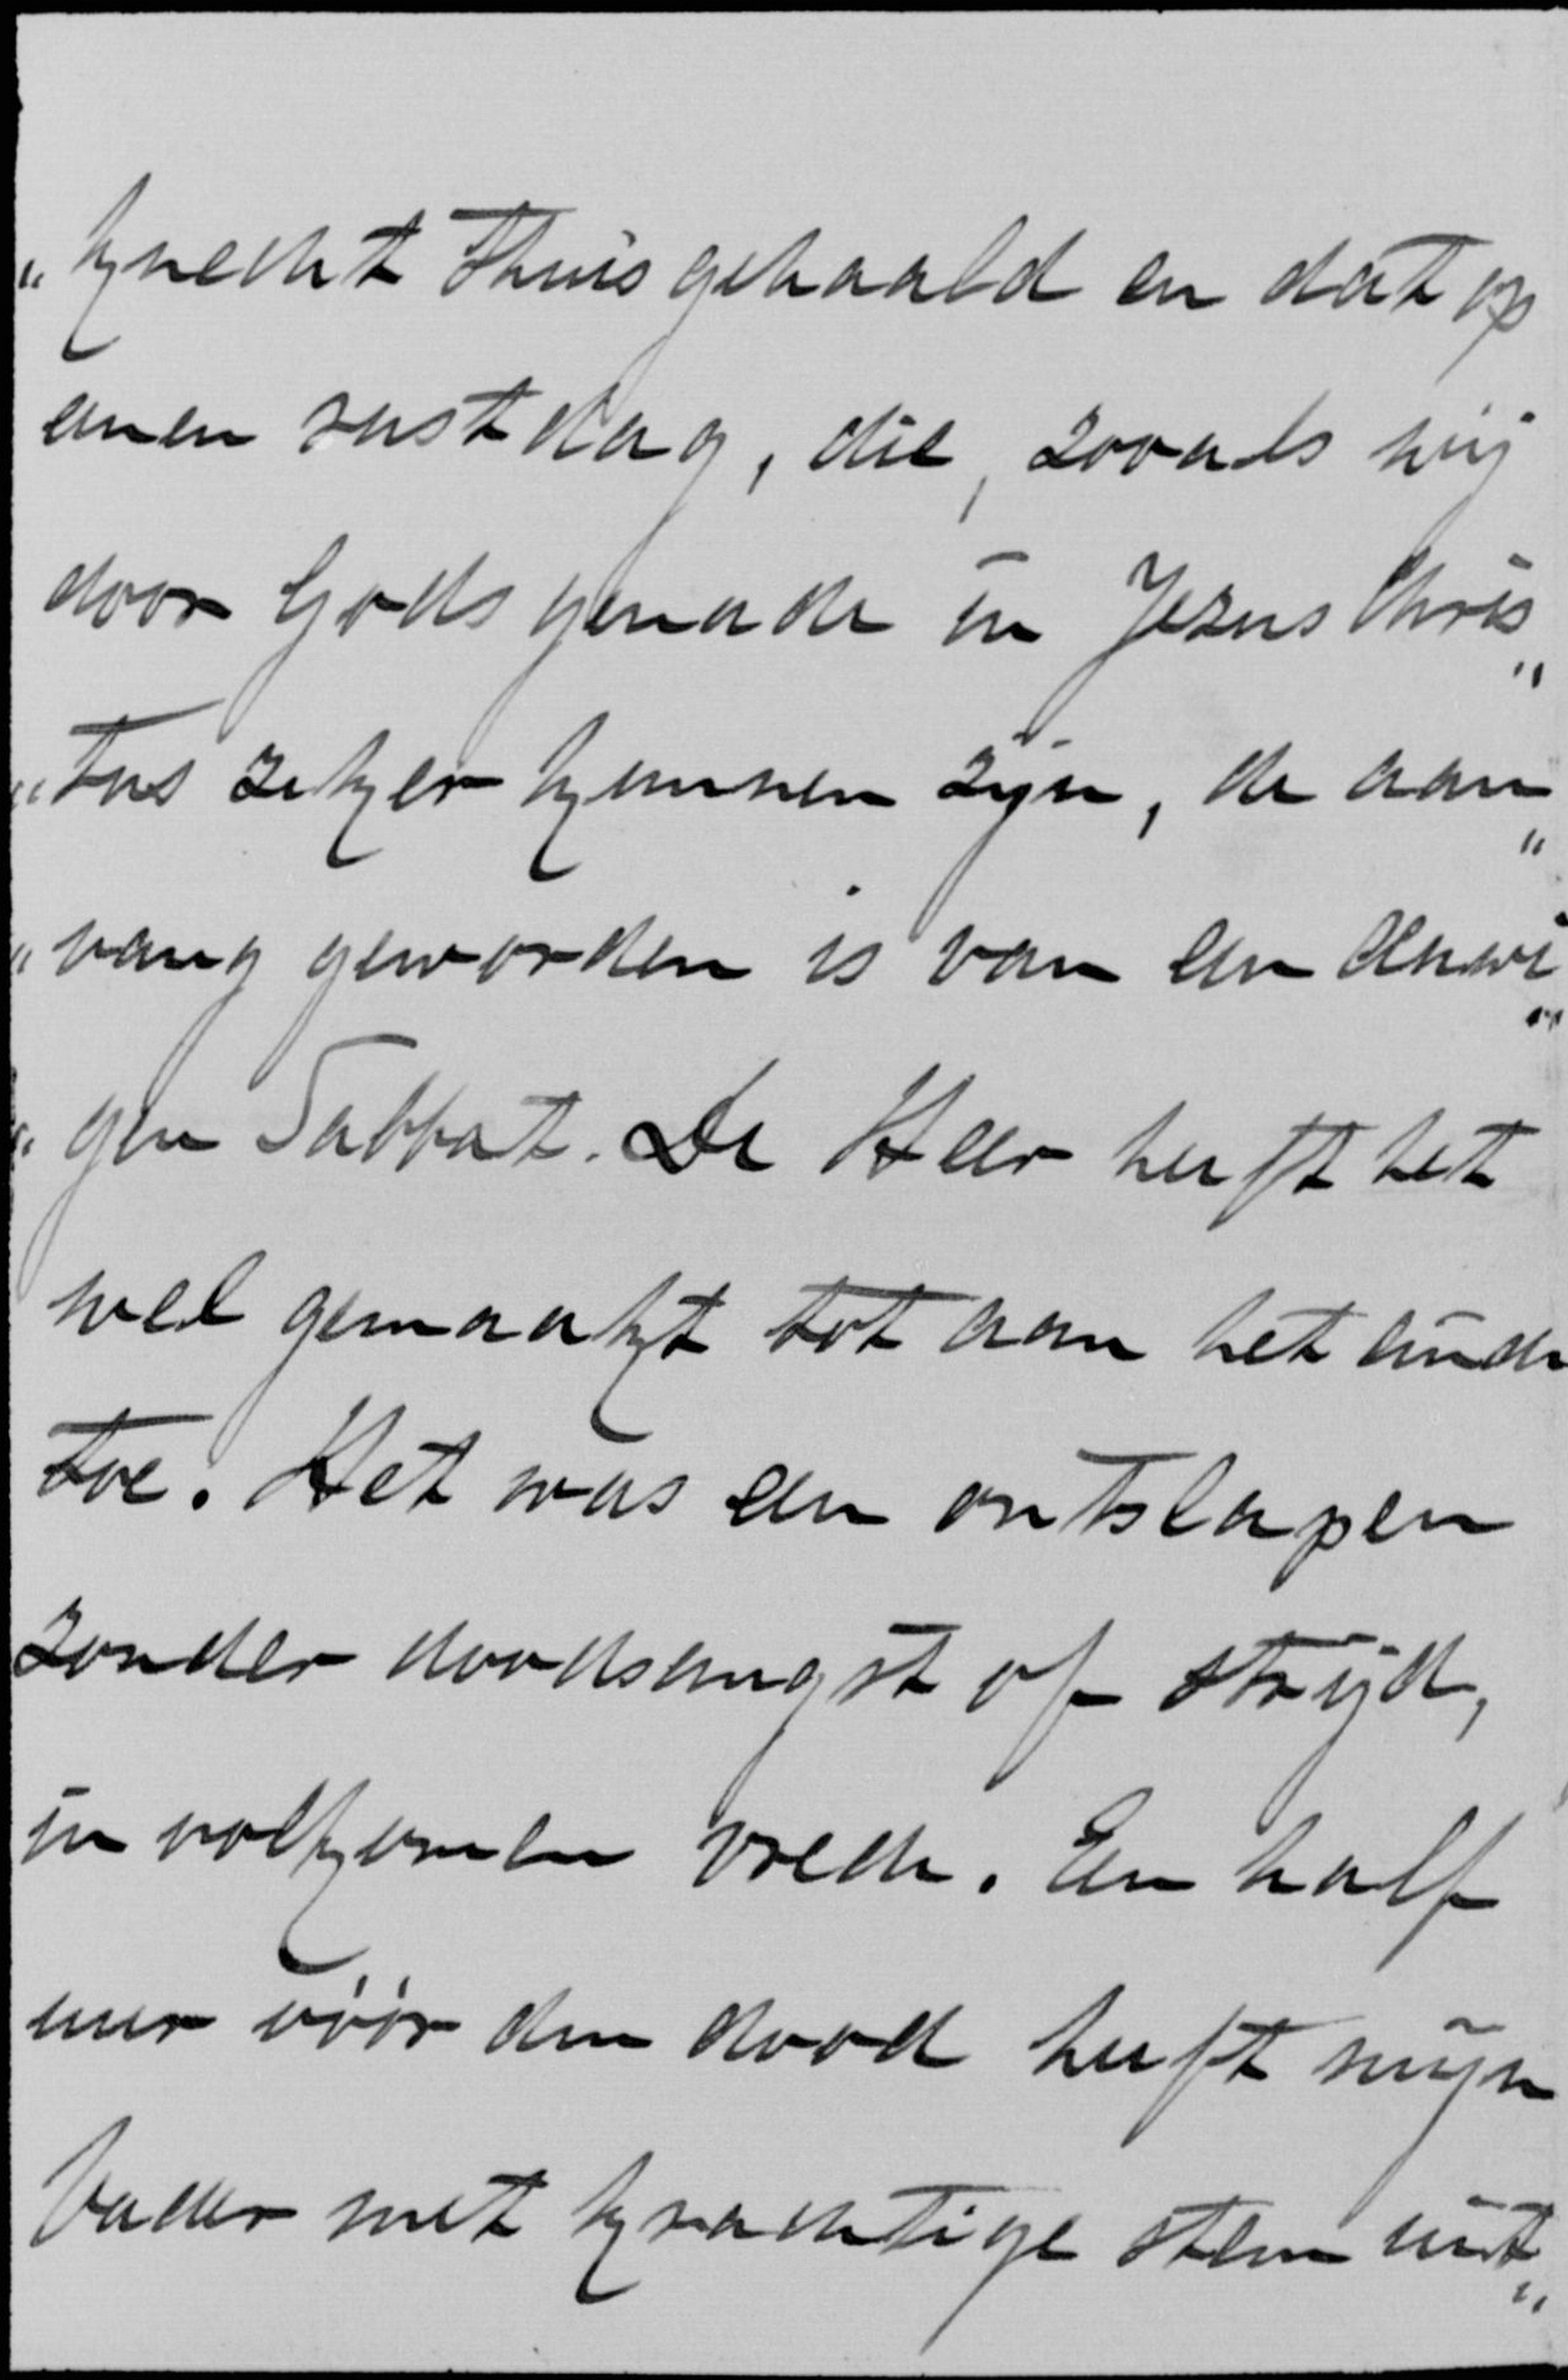 „knecht thuisgehaald en dat op
eenen rustdag, die, zooals wij
door Gods genade in Jezus Chris„
„tus zeker kunnen zijn, de aan„
„vang geworden is van een eeuwi„
„gen Sabbat. De Heer heeft het
wel gemaakt tot aan het einde
toe. Het was een ontslapen
zonder doodsangst of strijd,
in volkomen vrede. Een half
uur vóór den dood heeft mijn
Vader met krachtige stem uit„